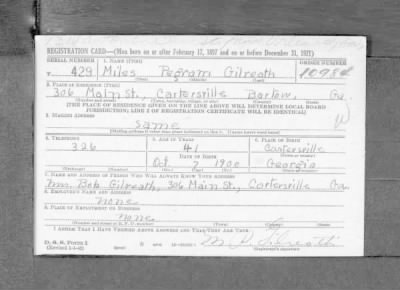 REGISTRATION CARD—(Men born on or after February 17, 1897 and on or before December 31, 1921)
SERIAL NUMBER 1. NAME (Print) ORDER NUMBER
T 429 Miles Pegram Gilreath 10984
(First) (Middle) (Last)
2. PLACE OF RESIDENCE (Print)
306 Main St., Cartersville Bartow, Ga
(Number and street) (Town, township, village, or city) (County) (State)
[THE PLACE OF RESIDENCE GIVEN ON THE LINE ABOVE WILL DETERMINE LOCAL BOARD
JURISDICTION; LINE 2 OF REGISTRATION CERTIFICATE WILL BE IDENTICAL]
3. MAILING ADDRESS
Same
[Mailing address if other than place indicated on line 2. If same insert word same]
4. TELEPHONE 5. AGE IN YEARS 6. PLACE OF BIRTH
326 41 Cartersville
DATE OF BIRTH (Town or county)
Oct. 7 1900 Georgia
(Mo.) (Day) (Yr.) (State or country)
7. NAME AND ADDRESS OF PERSON WHO WILL ALWAYS KNOW YOUR ADDRESS
Mrs. Bob Gilreath, 306 Main St., Cartersville Ga.
8. EMPLOYER'S NAME AND ADDRESS
none
9. PLACE OF EMPLOYMENT OR BUSINESS
none
(Number and street or R. F. D. number) (Town) (County) (State)
I AFFIRM THAT I HAVE VERIFIED ABOVE ANSWERS AND THAT THEY ARE TRUE.
D. S. S. Form 1
(Revised 1-1-42) M. P. Gilreath
(Registrant's signature)